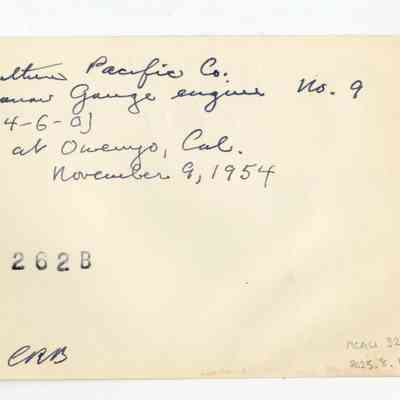 Pacific Co.
Gauge engine No. 9
4-6-0)
at Owenyo, Cal.
November 9, 1954
262B
CRB